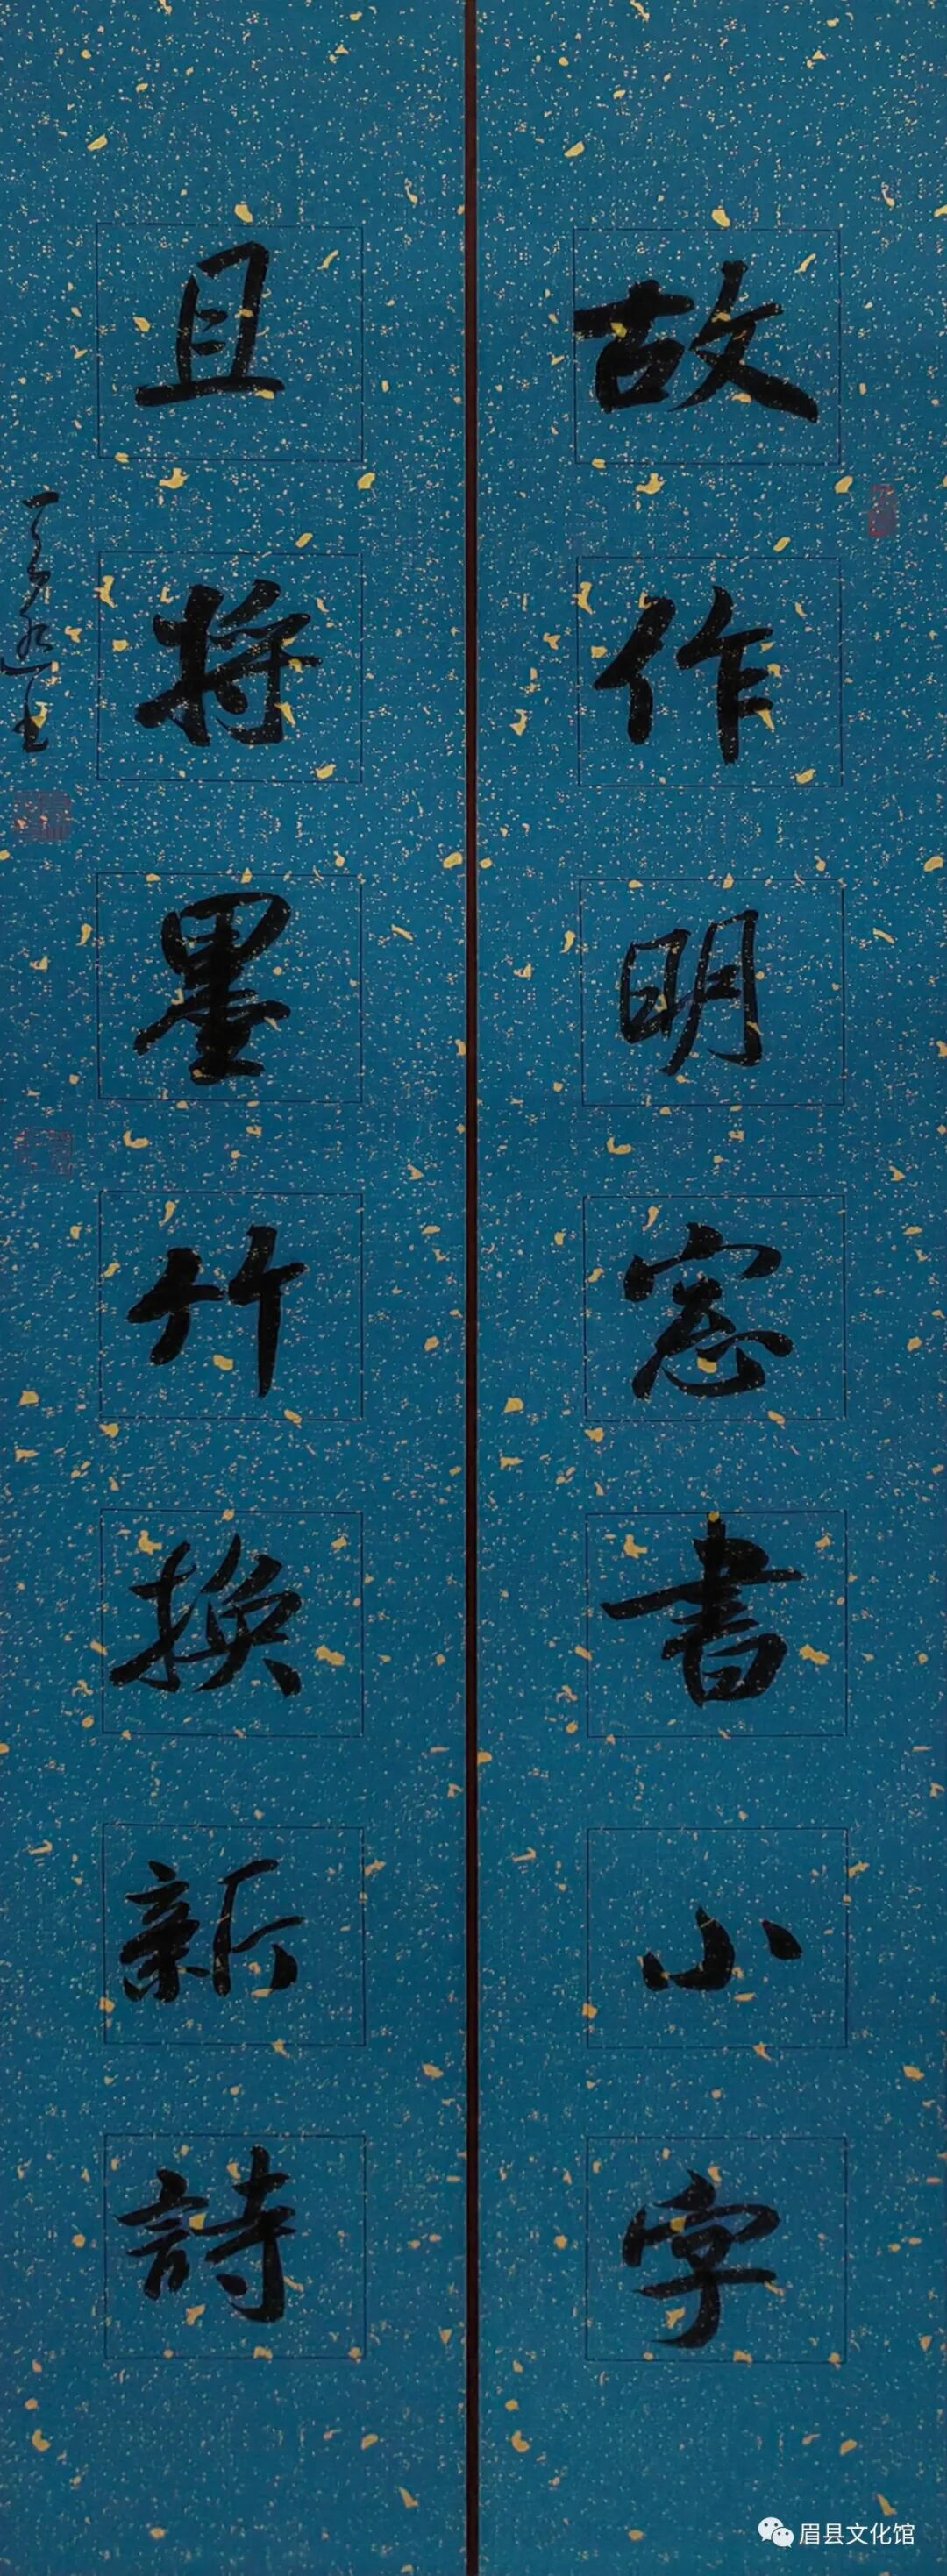 故作明窓書小字
且将墨竹換新詩
眉县文化馆